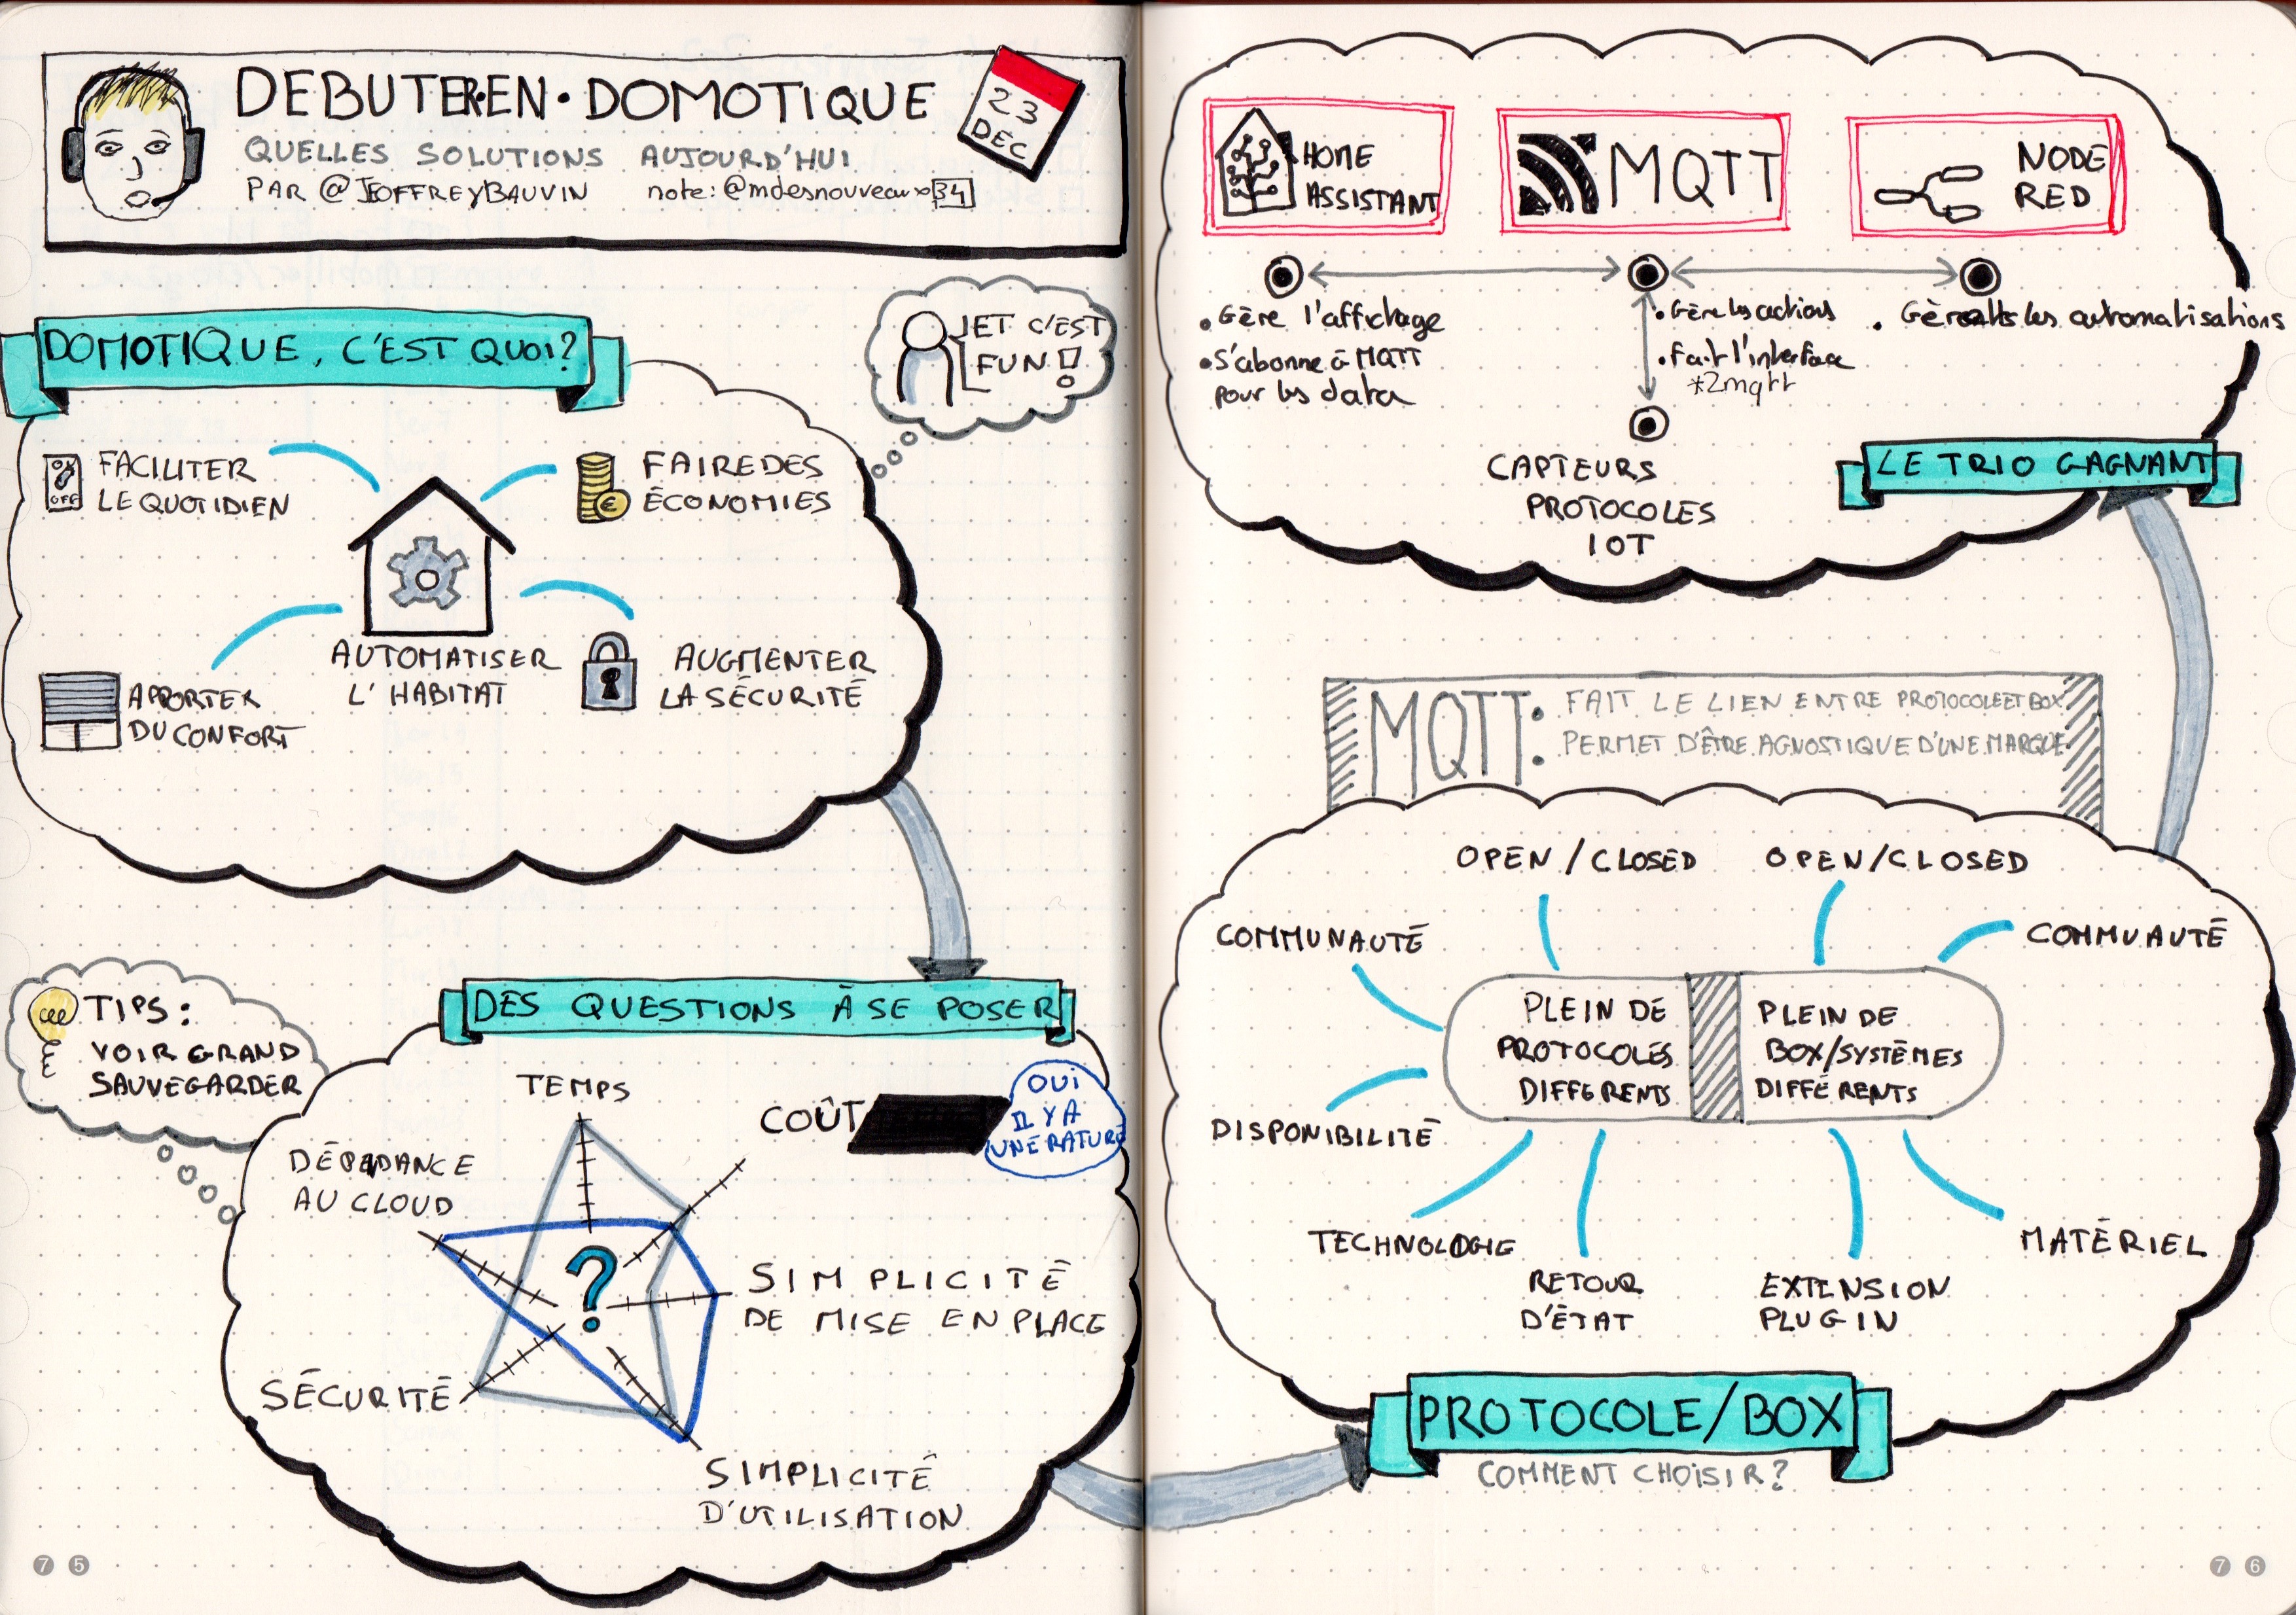 DEBUTER·EN·DOMOTIQUE
QUELLES SOLUTIONS AUJOURD'HUI
PAR @JEOFFREYBAUVIN note: @mdesnouveaux34
23
DÉC
DOMOTIQUE, C'EST QUOI?
ET C'EST
FUN!
OFF
FACILITER
LE QUOTIDIEN
€
FAIRE DES
ÉCONOMIES
AUTOMATISER
L'HABITAT
APPORTER
DU CONFORT
AUGMENTER
LA SÉCURITÉ
TIPS:
VOIR GRAND
SAUVEGARDER
DES QUESTIONS À SE POSER
TEMPS
COÛT
OUI
IL Y A
UNE RATURE
DÉPENDANCE
AU CLOUD
?
SIMPLICITÉ
DE MISE EN PLACE
SÉCURITÉ
SIMPLICITÉ
D'UTILISATION
7 5
HOME
ASSISTANT
MQTT
NODE
RED
• Gère l'affichage
• S'abonne à MQTT
pour les data
• Gère les actions
• Fait l'interface
*2mqtt
• Gère les automatisations
CAPTEURS
PROTOCOLES
IOT
LE TRIO GAGNANT
MQTT: FAIT LE LIEN ENTRE PROTOCOLE ET BOX
PERMET D'ÊTRE AGNOSTIQUE D'UNE MARQUE
OPEN/CLOSED
OPEN/CLOSED
COMMUNAUTÉ
COMMUAUTÉ
PLEIN DE
PROTOCOLES
DIFFERENTS
PLEIN DE
BOX/SYSTÈMES
DIFFÉRENTS
DISPONIBILITÉ
TECHNOLOGIE
RETOUR
D'ÉTAT
EXTENSION
PLUGIN
MATÉRIEL
PROTOCOLE/BOX
COMMENT CHOISIR?
7 6